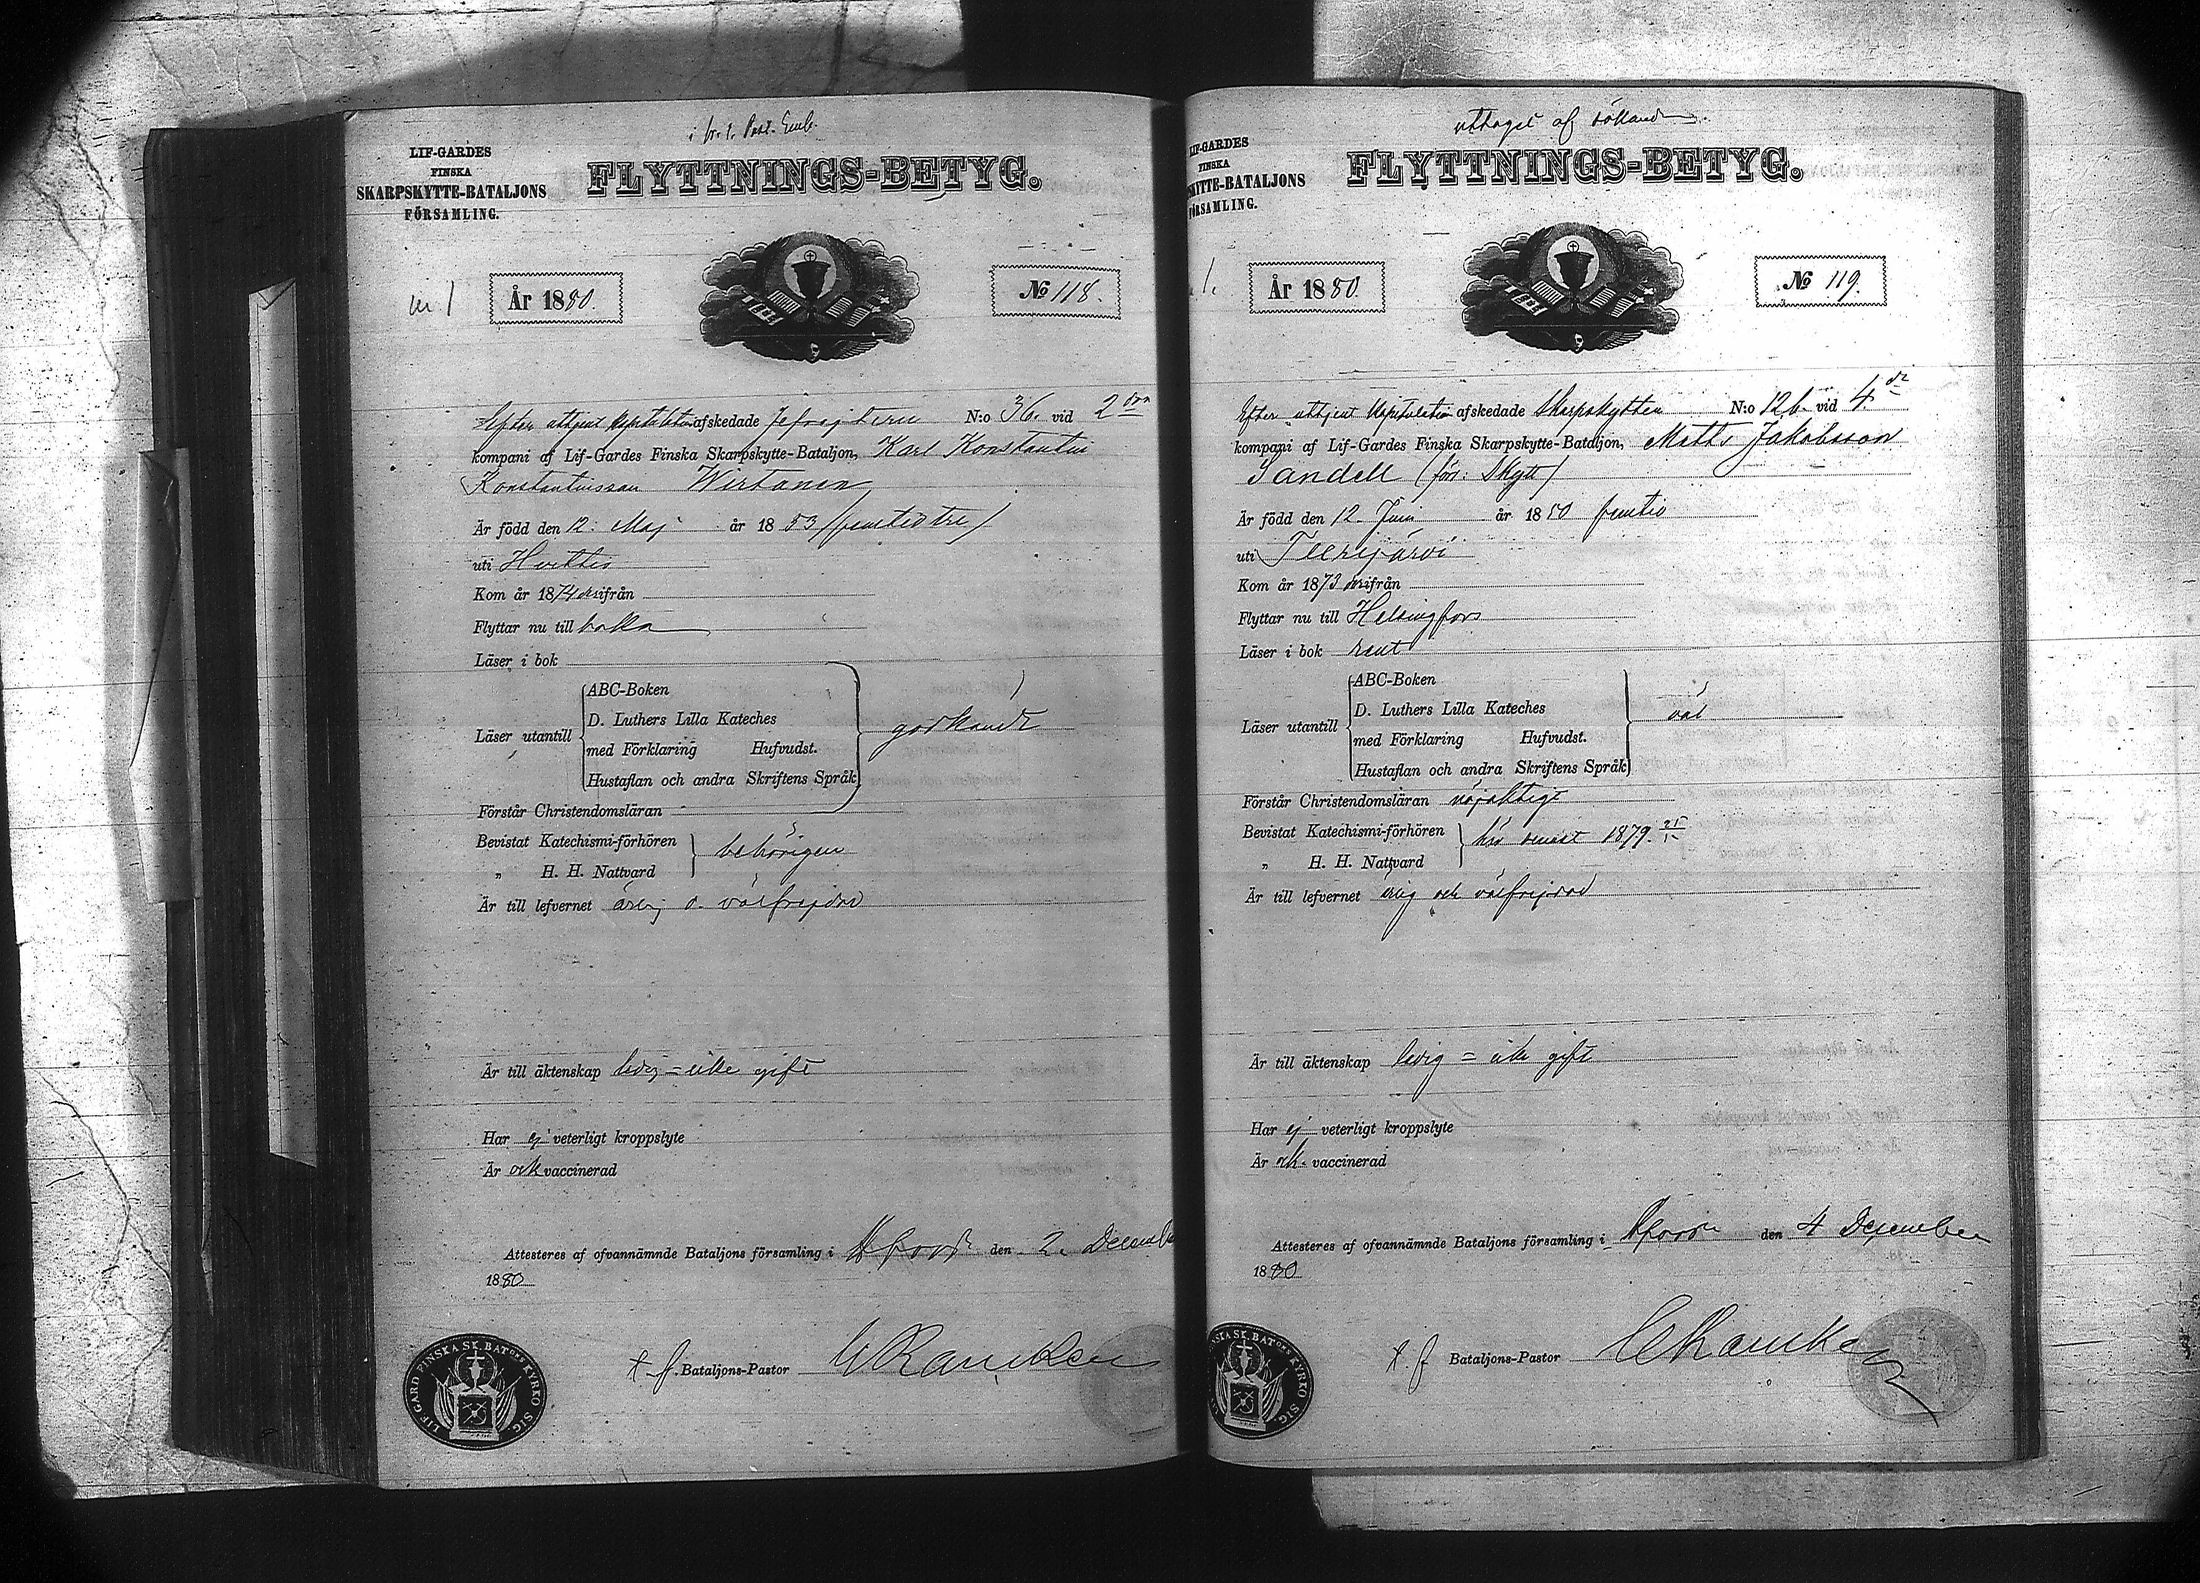 i br. t. Past. Emb.
LIF-GARDES
FINSKA
SKARPSKYTTE-BATALJONS
FÖRSAMLING.
FLYTTNINGS-BETYG.
År 1880.
№ 118.
Efter uttjent kapitulation afskedade N:o 36. vid 2
kompani af Lif-Gardes Finska Skarpskytte-Bataljon, Karl Konstantin
Konstantinsson Wirtanen
Är född den 12. Maj år 1853 /femtiotre/
uti Hvittis
Kom år 1874 ifrån
Flyttar nu till
Läser i bok
Läser utantill
ABC-Boken
D. Luthers Lilla Kateches
med Förklaring Hufvudst.
Hustaflan och andra Skriftens Språk
godkändt
Förstår Christendomsläran
Bevistat Katechismi-förhören
„ H. H. Nattvard
behörigen
Är till lefvernet ärlig o. välfrejdad
Är till äktenskap ledig = icke gift
Har ej veterligt kroppslyte
Är ock vaccinerad
Attesteres af ofvannämnde Bataljons församling i H:fors den 2. Decemb
1880
t. f. Bataljons-Pastor
LIF. GARD. FINSKA SK. BAT:ONS KYRKO SIG.
uttaget af sökanden.
LIF-GARDES
FINSKA
SKYTTE-BATALJONS
FÖRSAMLING.
FLYTTNINGS-BETYG.
År 1880.
№ 119.
Efter uttjent kapitulation afskedade Skarpskytten N:o 126 vid 4
kompani af Lif-Gardes Finska Skarpskytte-Bataljon, Matts Jakobsson
Sandell (för: Skytt)
Är född den 12. Juni år 1850 femtio
uti Teerijärvi
Kom år 1873 ifrån
Flyttar nu till Helsingfors
Läser i bok rent
Läser utantill
ABC-Boken
D. Luthers Lilla Kateches
med Förklaring Hufvudst.
Hustaflan och andra Skriftens Språk
väl
Förstår Christendomsläran nöjaktigt
Bevistat Katechismi-förhören
„ H. H. Nattvard
här senast 1879
Är till lefvernet ärlig och välfrejdad
Är till äktenskap ledig = icke gift
Har ej veterligt kroppslyte
Är ock vaccinerad
Attesteres af ofvannämnde Bataljons församling i H:fors den 4 December
1880
t. f. Bataljons-Pastor
NSKA SK. BAT:ONS KYRKO SIG.